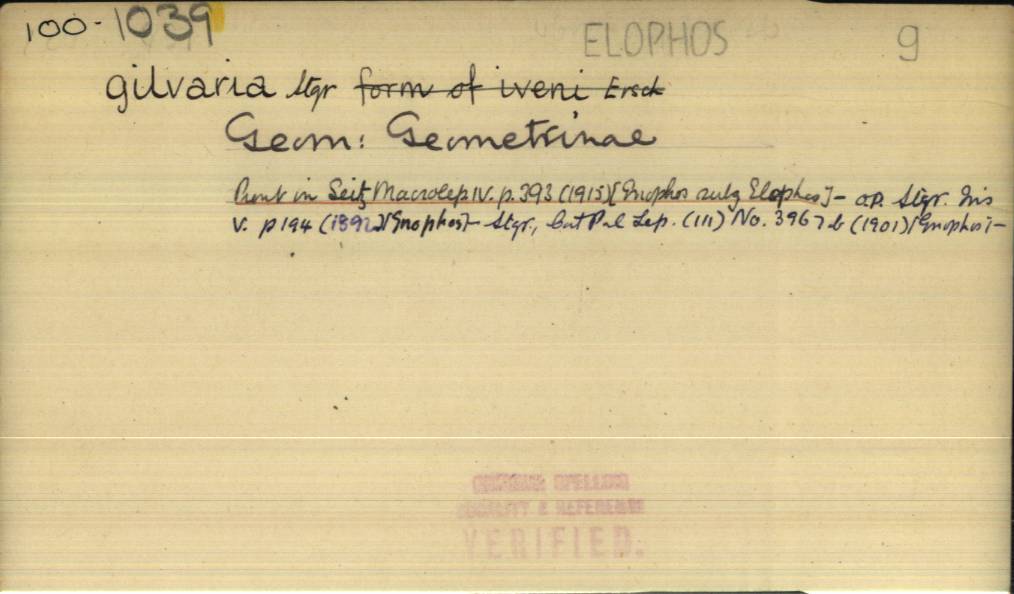 100-1039
ELOPHOS g
gilvaria Stgr form of iveni Ersch
Geom: Geometrinae
Prout in Seitz Macrolep IV. p.393 (1915) [Gnophos subg Elophos] - op. Stgr. Iris
V. p 194 (1892) [Gnophos] - Stgr., Cat Pal Lep. (III) No. 3967 b (1901) [Gnophos] -
ORIGINAL SPELLING
LOCALITY & REFERENCE
VERIFIED.